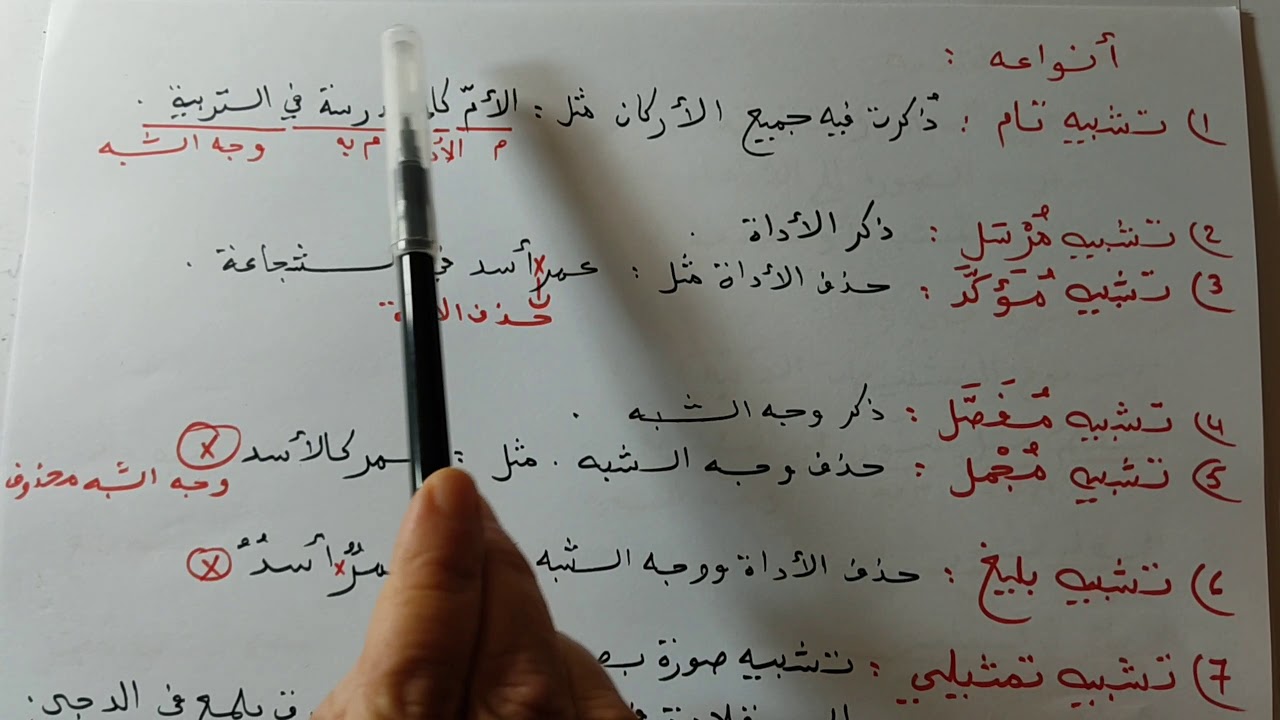 أنواعه :
1) تشبيه تام : ذُكرت فيه جميع الأركان مثل : الأمّ في التربية .
م م به وجه الشبه
2) تشبيه مُرْسَل : ذكر الأداة .
3) تشبيه مُؤَكَّد : حذف الأداة مثل : عمر × أسد شجاعة .
حذف
4) تشبيه مُفَصَّل : ذكر وجه الشبه .
5) تشبيه مُجْمل : حذف وجه الشبه . مثل : كالأسد ×
وجه الشبه محذوف
6) تشبيه بليغ : حذف الأداة ووجه الشبه × أسدٌ ×
7) تشبيه تمثيلي : تشبيه صورة
يلمع في الدجى .